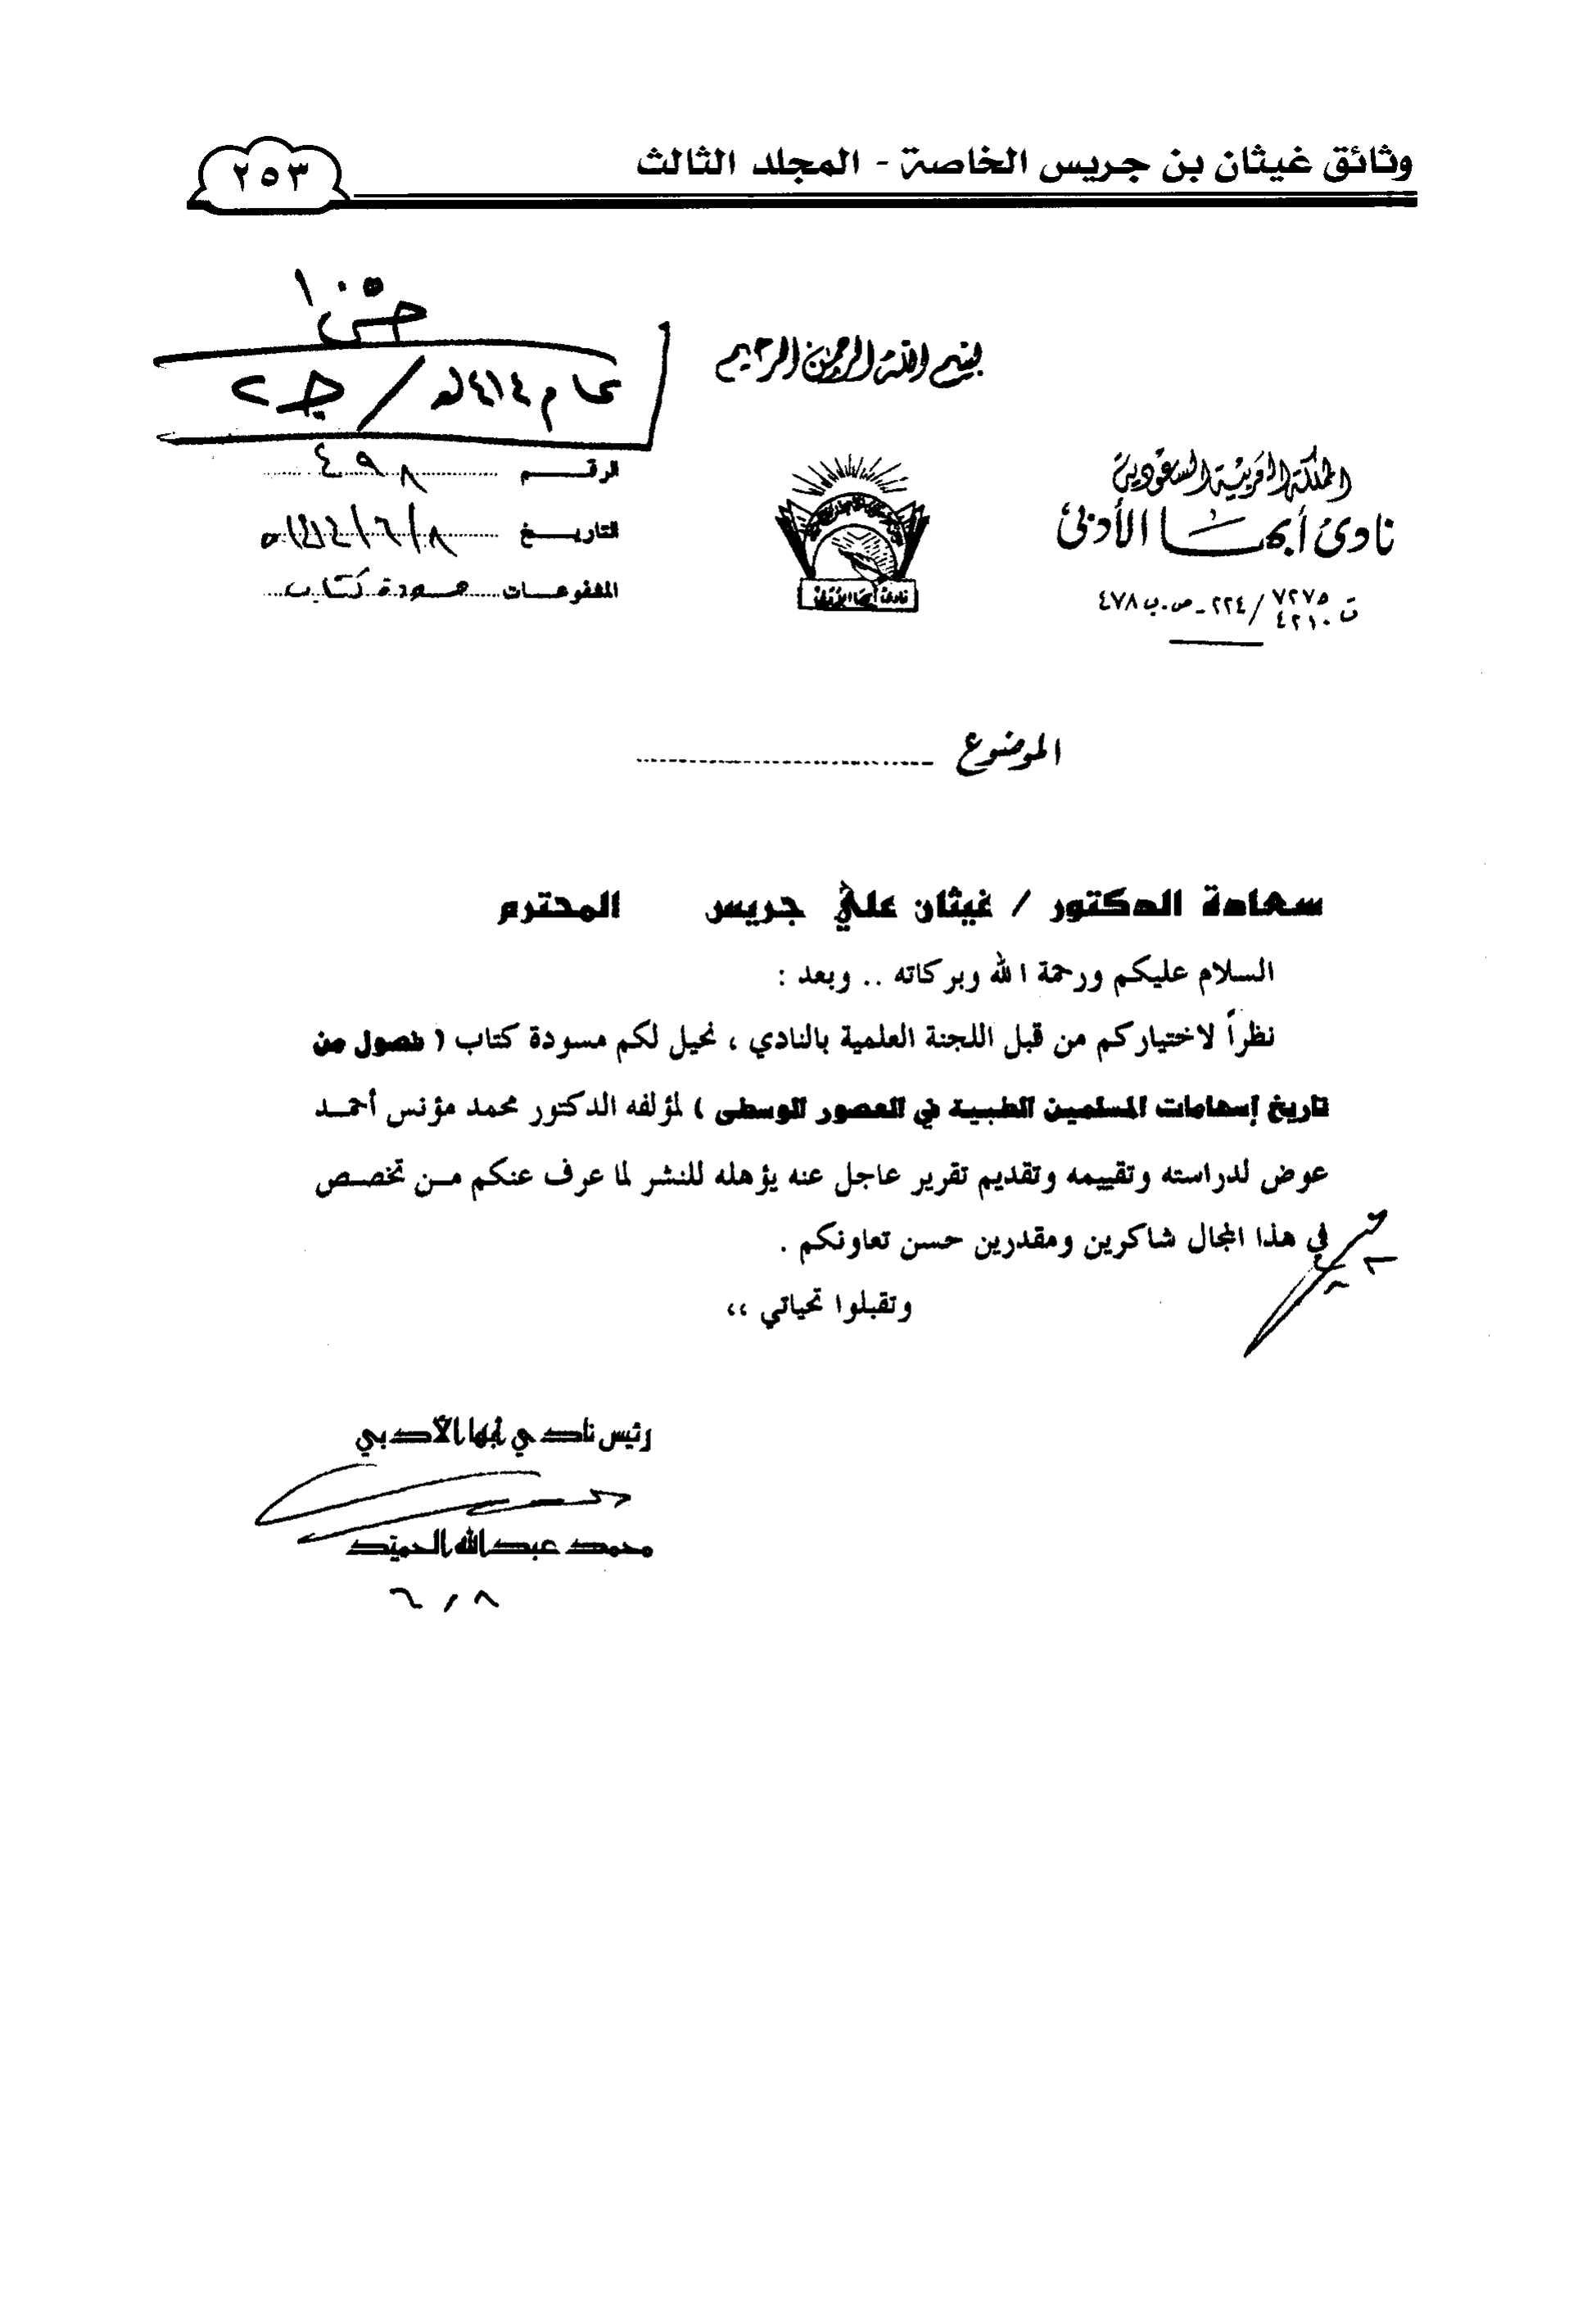 وثائق غيثان بن جريس الخاصة - المجلد الثالث
٢٥٣
عام ١٤١٤هـ / جـ٢
بسم الله الرحمن الرحيم
المملكة العربية السعودية
نادي أبها الأدبي
ت ٧٢٧٥ ٤٢١٠ / ٢٢٤ - ص.ب ٤٧٨
نادي أبها الأدبي
الرقـــم ٤٩٨
التاريـــخ ٨/٦/١٤١٤هـ
المشفوعـــات مسودة كتاب
الموضوع
سعادة الدكتور / غيثان علي جريس المحترم
السلام عليكم ورحمة الله وبركاته .. وبعد :
نظراً لاختياركم من قبل اللجنة العلمية بالنادي ، نحيل لكم مسودة كتاب ( فصول من
تاريخ إسهامات المسلمين الطبية في العصور الوسطى ) لمؤلفه الدكتور محمد مؤنس أحمـــد
عوض لدراسته وتقييمه وتقديم تقرير عاجل عنه يؤهله للنشر لما عرف عنكم مــن تخصــص
في هذا المجال شاكرين ومقدرين حسن تعاونكم .
وتقبلوا تحياتي ،،
رئيس نادي أبها الأدبي
محمد عبدالله الحميّد
٨ / ٦